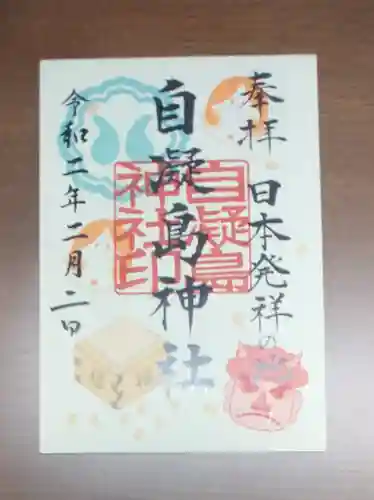 奉拝 日本発祥の
自凝島神社
令和二年二月二日
自凝島
神社印